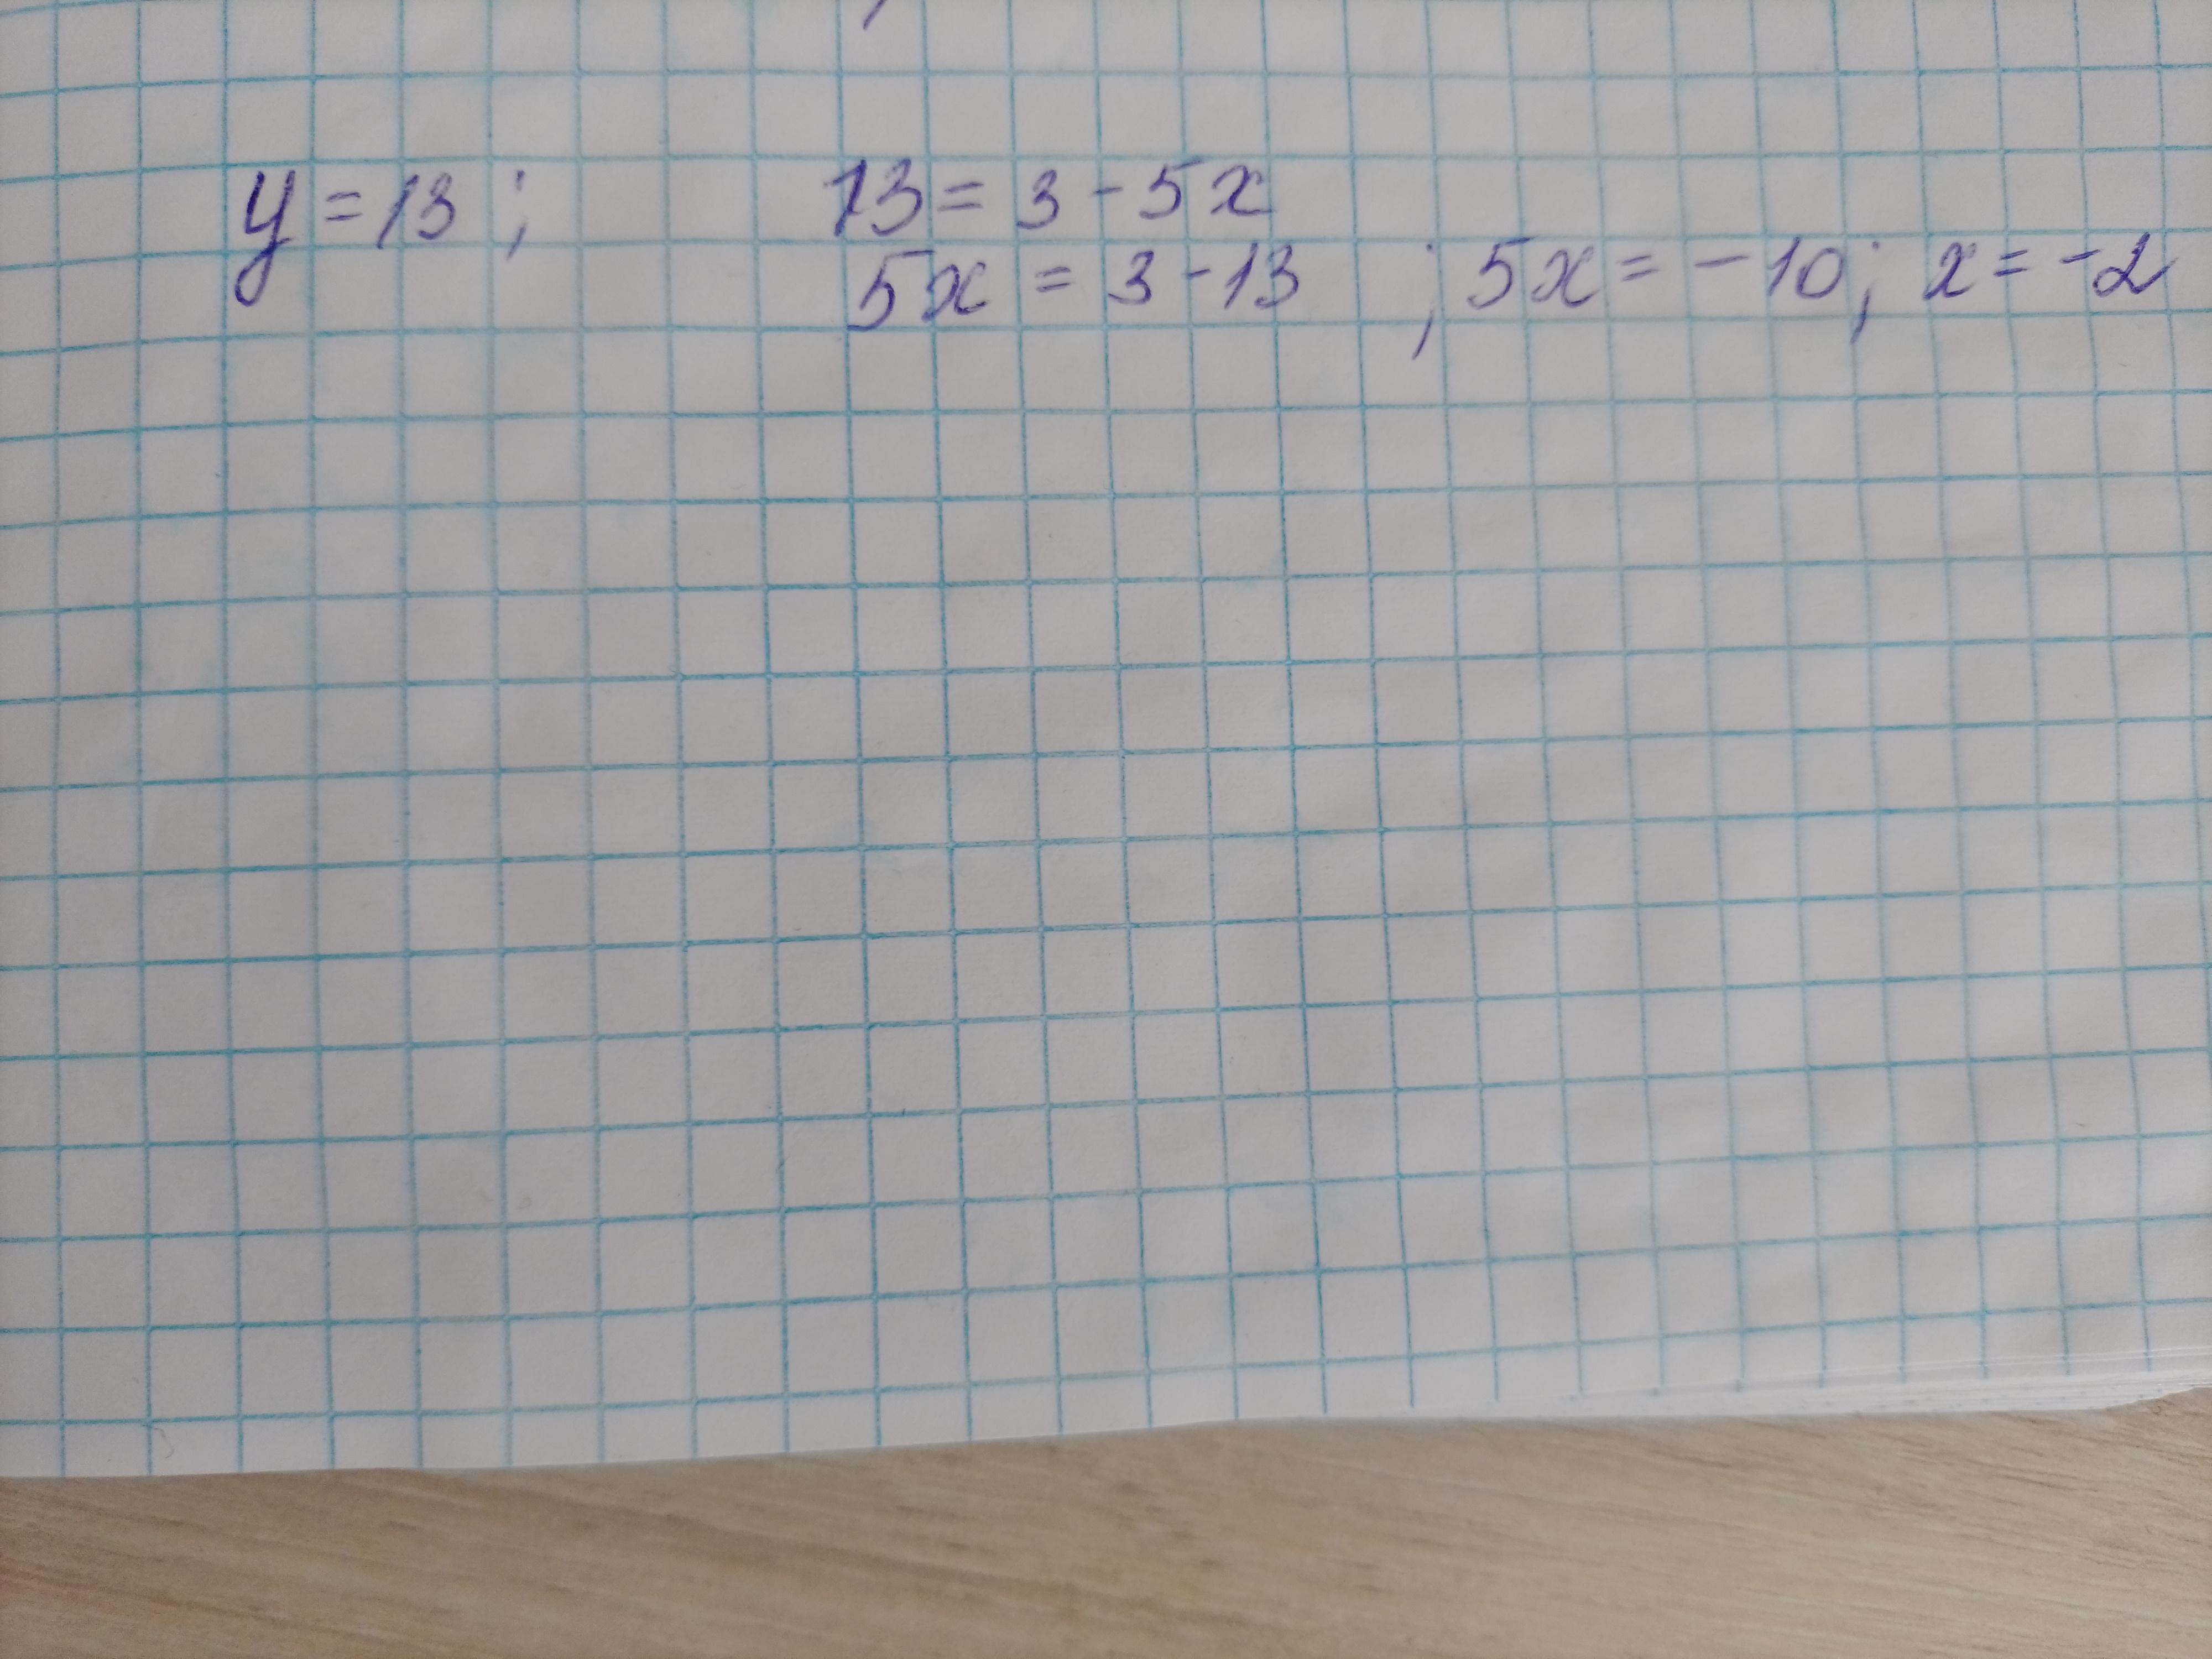 y = 13 ; 13 = 3 - 5x
5x = 3 - 13 ; 5x = - 10 ; x = -2